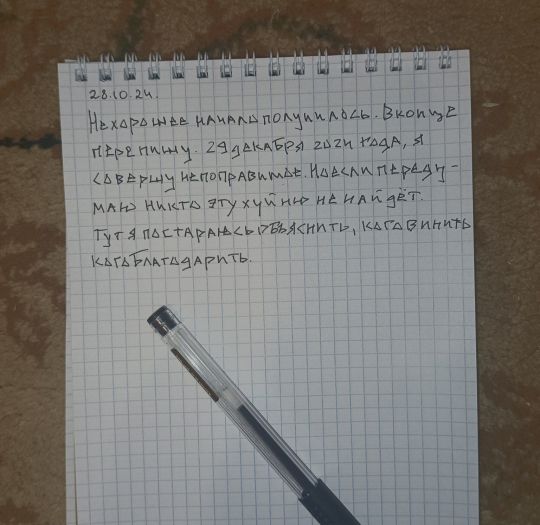 28.10.24.
Нехорошее начало получилось. В конце
перепишу. 29 декабря 2024 года, я
совершу непоправимое. Но если переду-
маю никто эту хуйню не найдёт.
Тут я постараюсь объяснить, кого винить
кого благодарить.